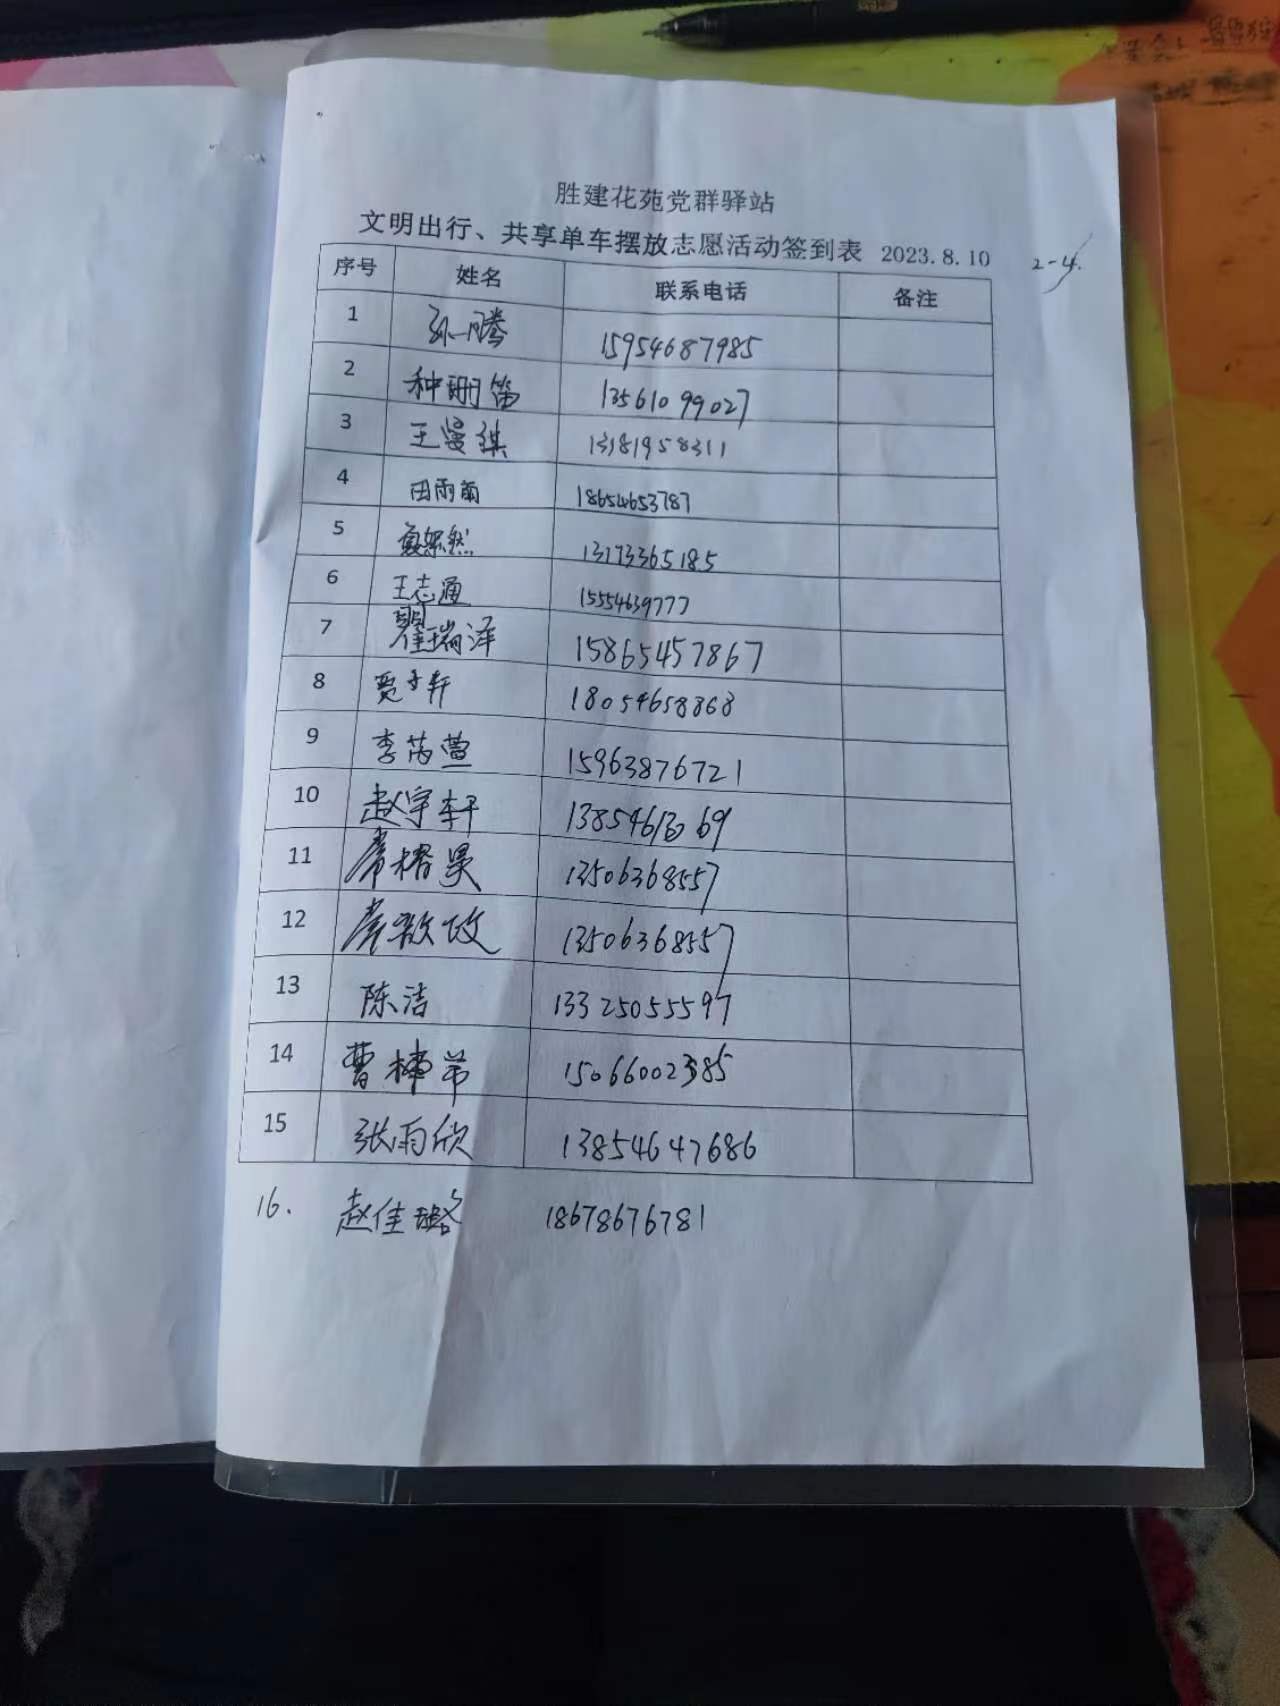 胜建花苑党群驿站
文明出行、共享单车摆放志愿活动签到表 2023.8.10 2-4.
序号 姓名 联系电话 备注
1 孙一腾 15954687985
2 种珊笛 13561099027
3 王曼琪 13181958311
4 田雨萌 18654653787
5 13173365185
6 王志通 15554639777
7 翟瑞泽 15865457867
8 贾子轩 18054658868
9 李芮萱 15963876721
10 赵宇轩
11 13506368557
12 13506368557
13 陈洁 13325055597
14 曹 15066002385
15 张雨欣 13854647686
16. 赵佳璐 18678676781